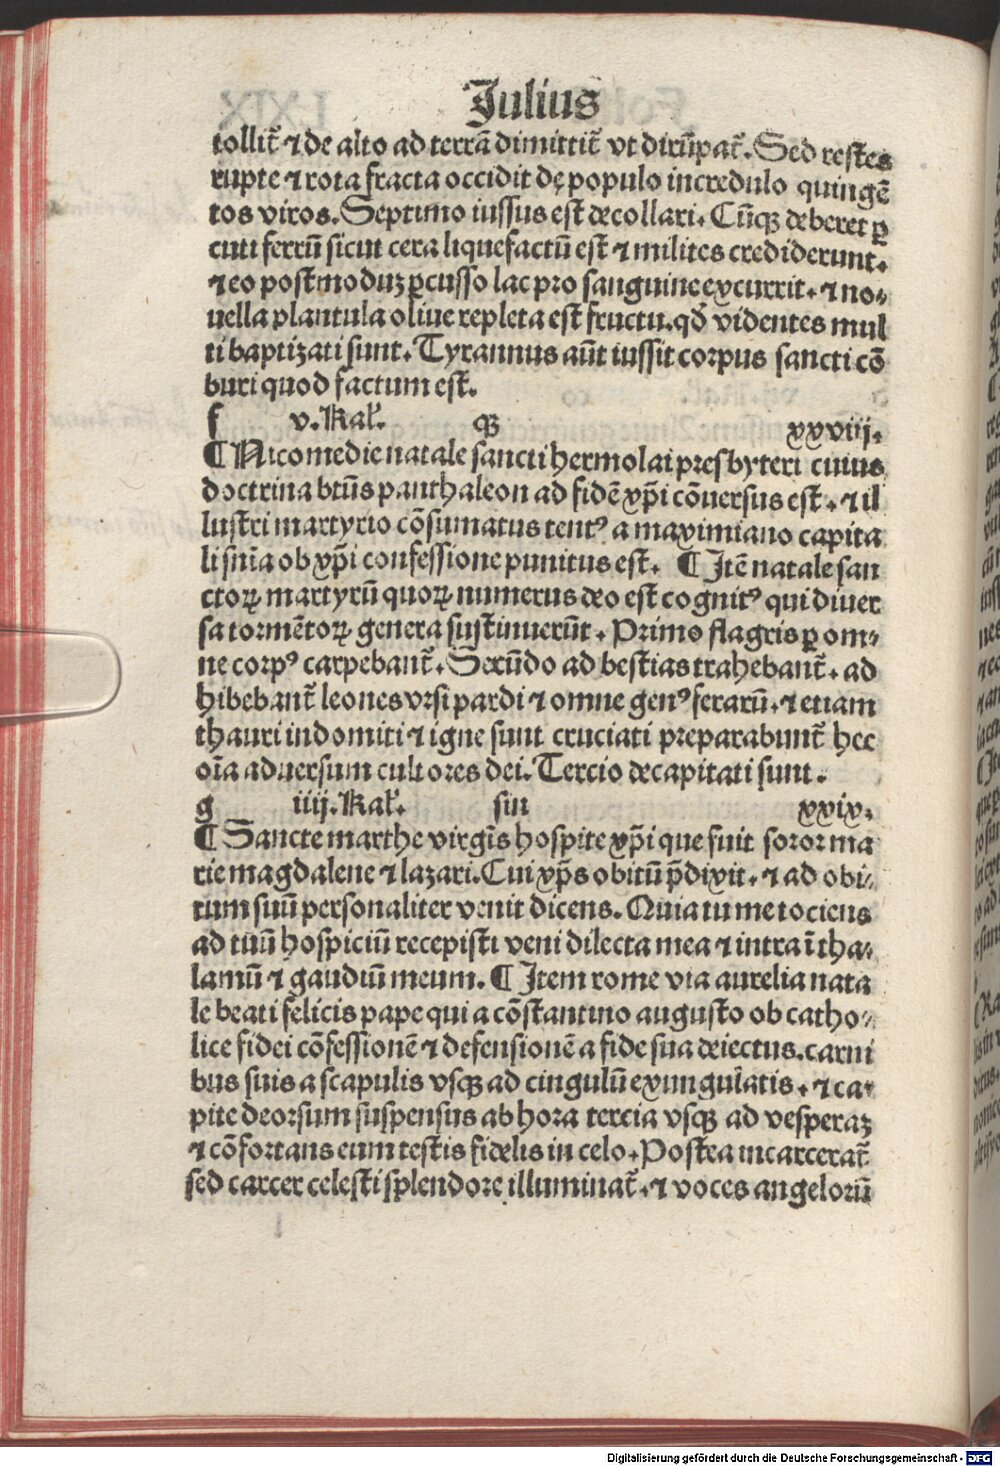 Julius
tollit̃ ⁊ de alto ad terrã dimittit̃ vt dirũpat̃. Sed restes
rupte ⁊ rota fracta occidit dę populo incredulo quingẽ
tos viros. Septimo iussus est decollari. Cũqꝫ deberet ꝑ
cuti ferrũ sicut cera liquefactũ est ⁊ milites crediderunt.
⁊ eo postmoduꝫ ꝑcusso lac pro sanguine excurrit. ⁊ no⸗
uella plantula oliue repleta est fructu. qđ videntes mul
ti baptizati sunt. Tyrannus aũt iussit corpus sancti cõ
buri quod factum est.
f v. Kal̃. qꝫ xxviij.
¶ Nicomedie natale sancti hermolai presbyteri cuius
doctrina btũs panthaleon ad fidẽ xp̃i cõuersus est. ⁊ il
lustri martyrio cõsumatus tentꝰ a maximiano capita
li sñia ob xp̃i confessione punitus est. ¶ Itẽ natale san
ctoꝝ martyrũ quoꝝ numerus deo est cognitꝰ qui diuer
sa tormẽtoꝝ genera sustinuerũt. Primo flagris ꝑ om⸗
ne corpꝰ carpebant̃. Secũdo ad bestias trahebant̃. ad
hibebant̃ leones vrsi pardi ⁊ omne genꝰ ferarũ. ⁊ etiam
thauri indomiti ⁊ igne sunt cruciati preparabunt̃ hec
oĩa aduersum cultores dei. Tercio decapitati sunt.
g iiij. Kal̃. sin xxix.
¶ Sancte marthe virgĩs hospite xp̃i que fuit soror ma
rie magdalene ⁊ lazari. Cui xp̃s obitũ p̃dixit. ⁊ ad obi⸗
tum suũ personaliter venit dicens. Quia tu me tociens
ad tuũ hospiciũ recepisti veni dilecta mea ⁊ intra ĩ tha⸗
lamũ ⁊ gaudiũ meum. ¶ Item rome via aurelia nata
le beati felicis pape qui a cõstantino augusto ob catho⸗
lice fidei cõfessionẽ ⁊ defensionẽ a fide sua deiectus. carni
bus suis a scapulis vsqꝫ ad cingulũ exungulatis. ⁊ ca⸗
pite deorsum suspensus ab hora tercia vsqꝫ ad vesperaꝫ
⁊ cõfortans eum testis fidelis in celo. Postea incarcerat̃
sed carcer celesti splendore illuminat̃. ⁊ voces angelorũ
Digitalisierung gefördert durch die Deutsche Forschungsgemeinschaft - DFG